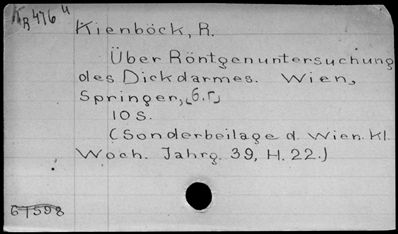 476 4
Kienböck, R.
Über Röntgenuntersuchung
des Dickdarmes. Wien,
Springer, [s.r]
10 S.
(Sonderbeilage d. Wien. Kl.
Woch. Jahrg. 39, H. 22.)
61598